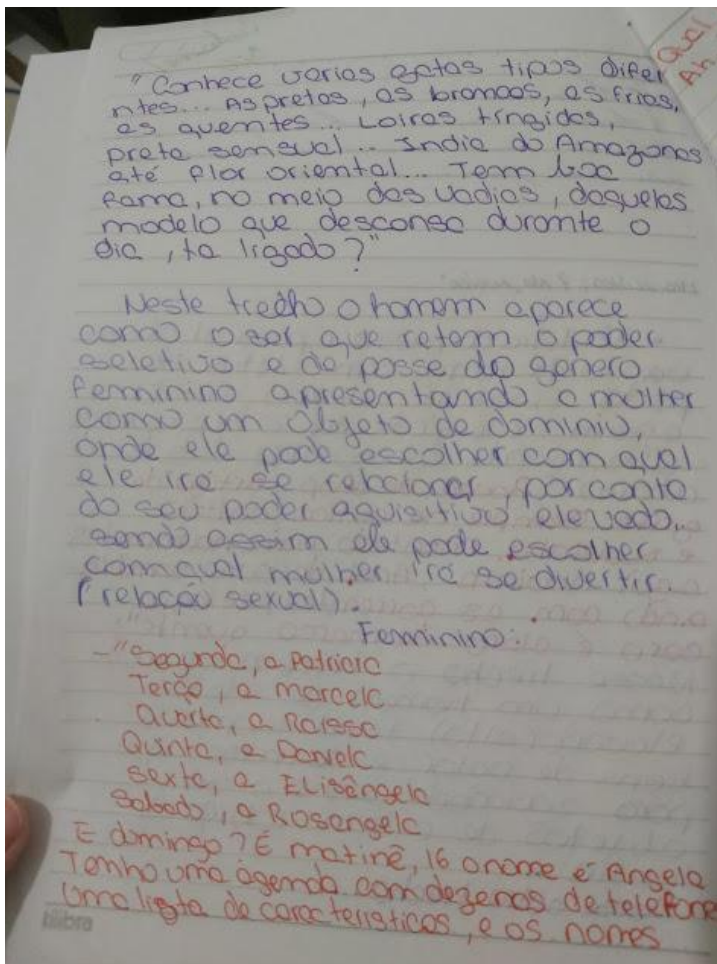 Qual
Ah
"Conhece varias gatas tipos difer
ntes... As pretas, as brancas, as frias,
as quentes... Loiras tingidas,
preta sensual... India do Amazonas
até flor oriental... Tem boa
fama, no meio das vadias, daquelas
modelo que descansa durante o
dia, ta ligado?"
Neste trecho o homem aparece
como o ser que retem o poder
seletivo e de posse do genero
feminino apresentando a mulher
como um objeto de dominio,
onde ele pode escolher com qual
ele irá se relacionar, por conta
do seu poder aquisitivo elevado..
sendo assim ele pode escolher
com qual mulher irá se divertir.
(relação sexual).
Feminino:
-"Segunda, a Patricia
Terça, a Marcela
Quarta, a Raissa
Quinta, a Daniela
Sexta, a Elisângela
Sabado, a Rosangela
E domingo? É matinê, 16 o nome é Angela
Tenho uma agenda com dezenas de telefone
Uma lista de caracteristicas, e os nomes
tilibra